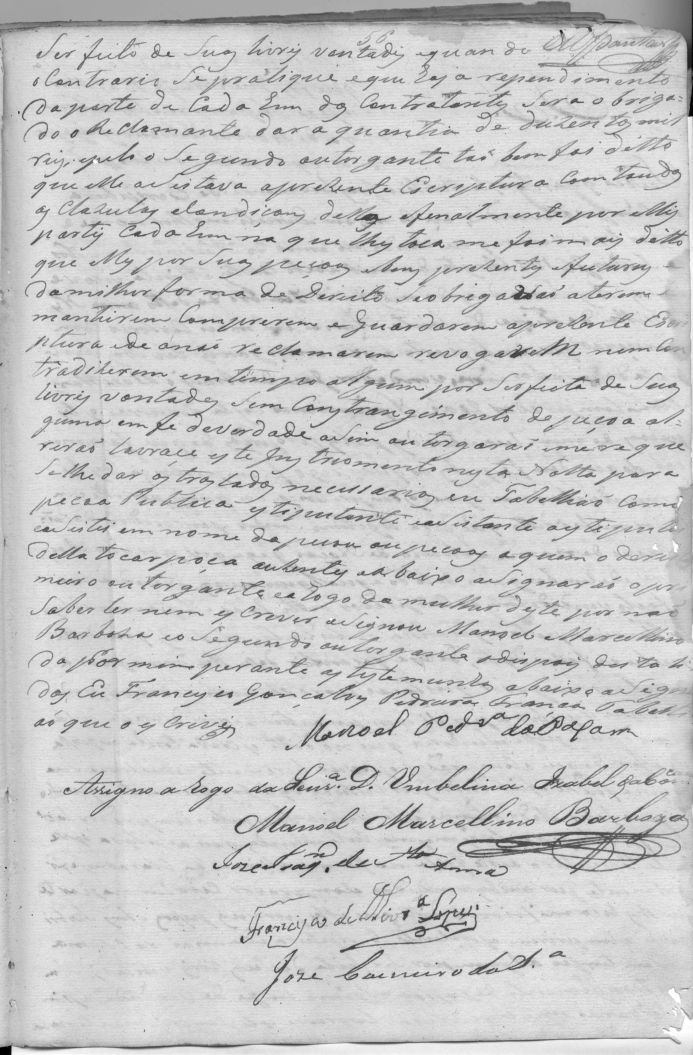 56
Ser feito de Suas livres vontades e quando
o Contrario Se pratique e que haja rependimento
da parte de Cada hum dos Contratantes Sera obriga-
do o Reclamante dar a quantia de duzentos mil
reis. pelo o Segundo autorgante taõ bem foi ditto
que elle aseitava a prezente Escriptura Com todas
as Clazulas e Condicois della e finalmente por elles
partes Cada hum na que lhes toca me foi mais ditto
que elles por Suas pecoas e bens prezentes e futuros e
da milhor forma de Direito Se obrigavaõ a terem
mantirem Comprirem e Guardarem a prezente Escri-
ptura e de anaõ reclamarem revogarem nem Con-
tradiserem em tempo algum por Ser feita de Suas
livres vontades Sem Constrangimento de peçoa al-
guma em fé de verdade asim autorgaraõ e me reque
reraõ lavrace este Instromento nesta Notta para
Se lhe dar os treslados necessarios eu Tabelliaõ Como
pecoa Publica estipulante e aseitante a estipulei
e aseitei em nome da pecoa ou pecoas a quem o dereito
della tocar poça auzentes e abaixo asignaraõ o pri
meiro autorgante e a rogo da mulher deste por naõ
Saber ler nem escrever asignou Manoel Marcellino
Barboza e o Segundo autorgante e dispois desta li
da por mim perante as testemunhas abaixo asigna
das Eu Francisco Gonçalves Pedreira França Tabelli
aõ que o escrevy
Manoel Pedr.ª da
Assigno a rogo da Senr.ª D. Umbelina Izabel
Manoel Marcellino Barboza
Joze de S.ta Anna
Francisco de Olivr.ª Lopes
Joze Carneiro da S.ª